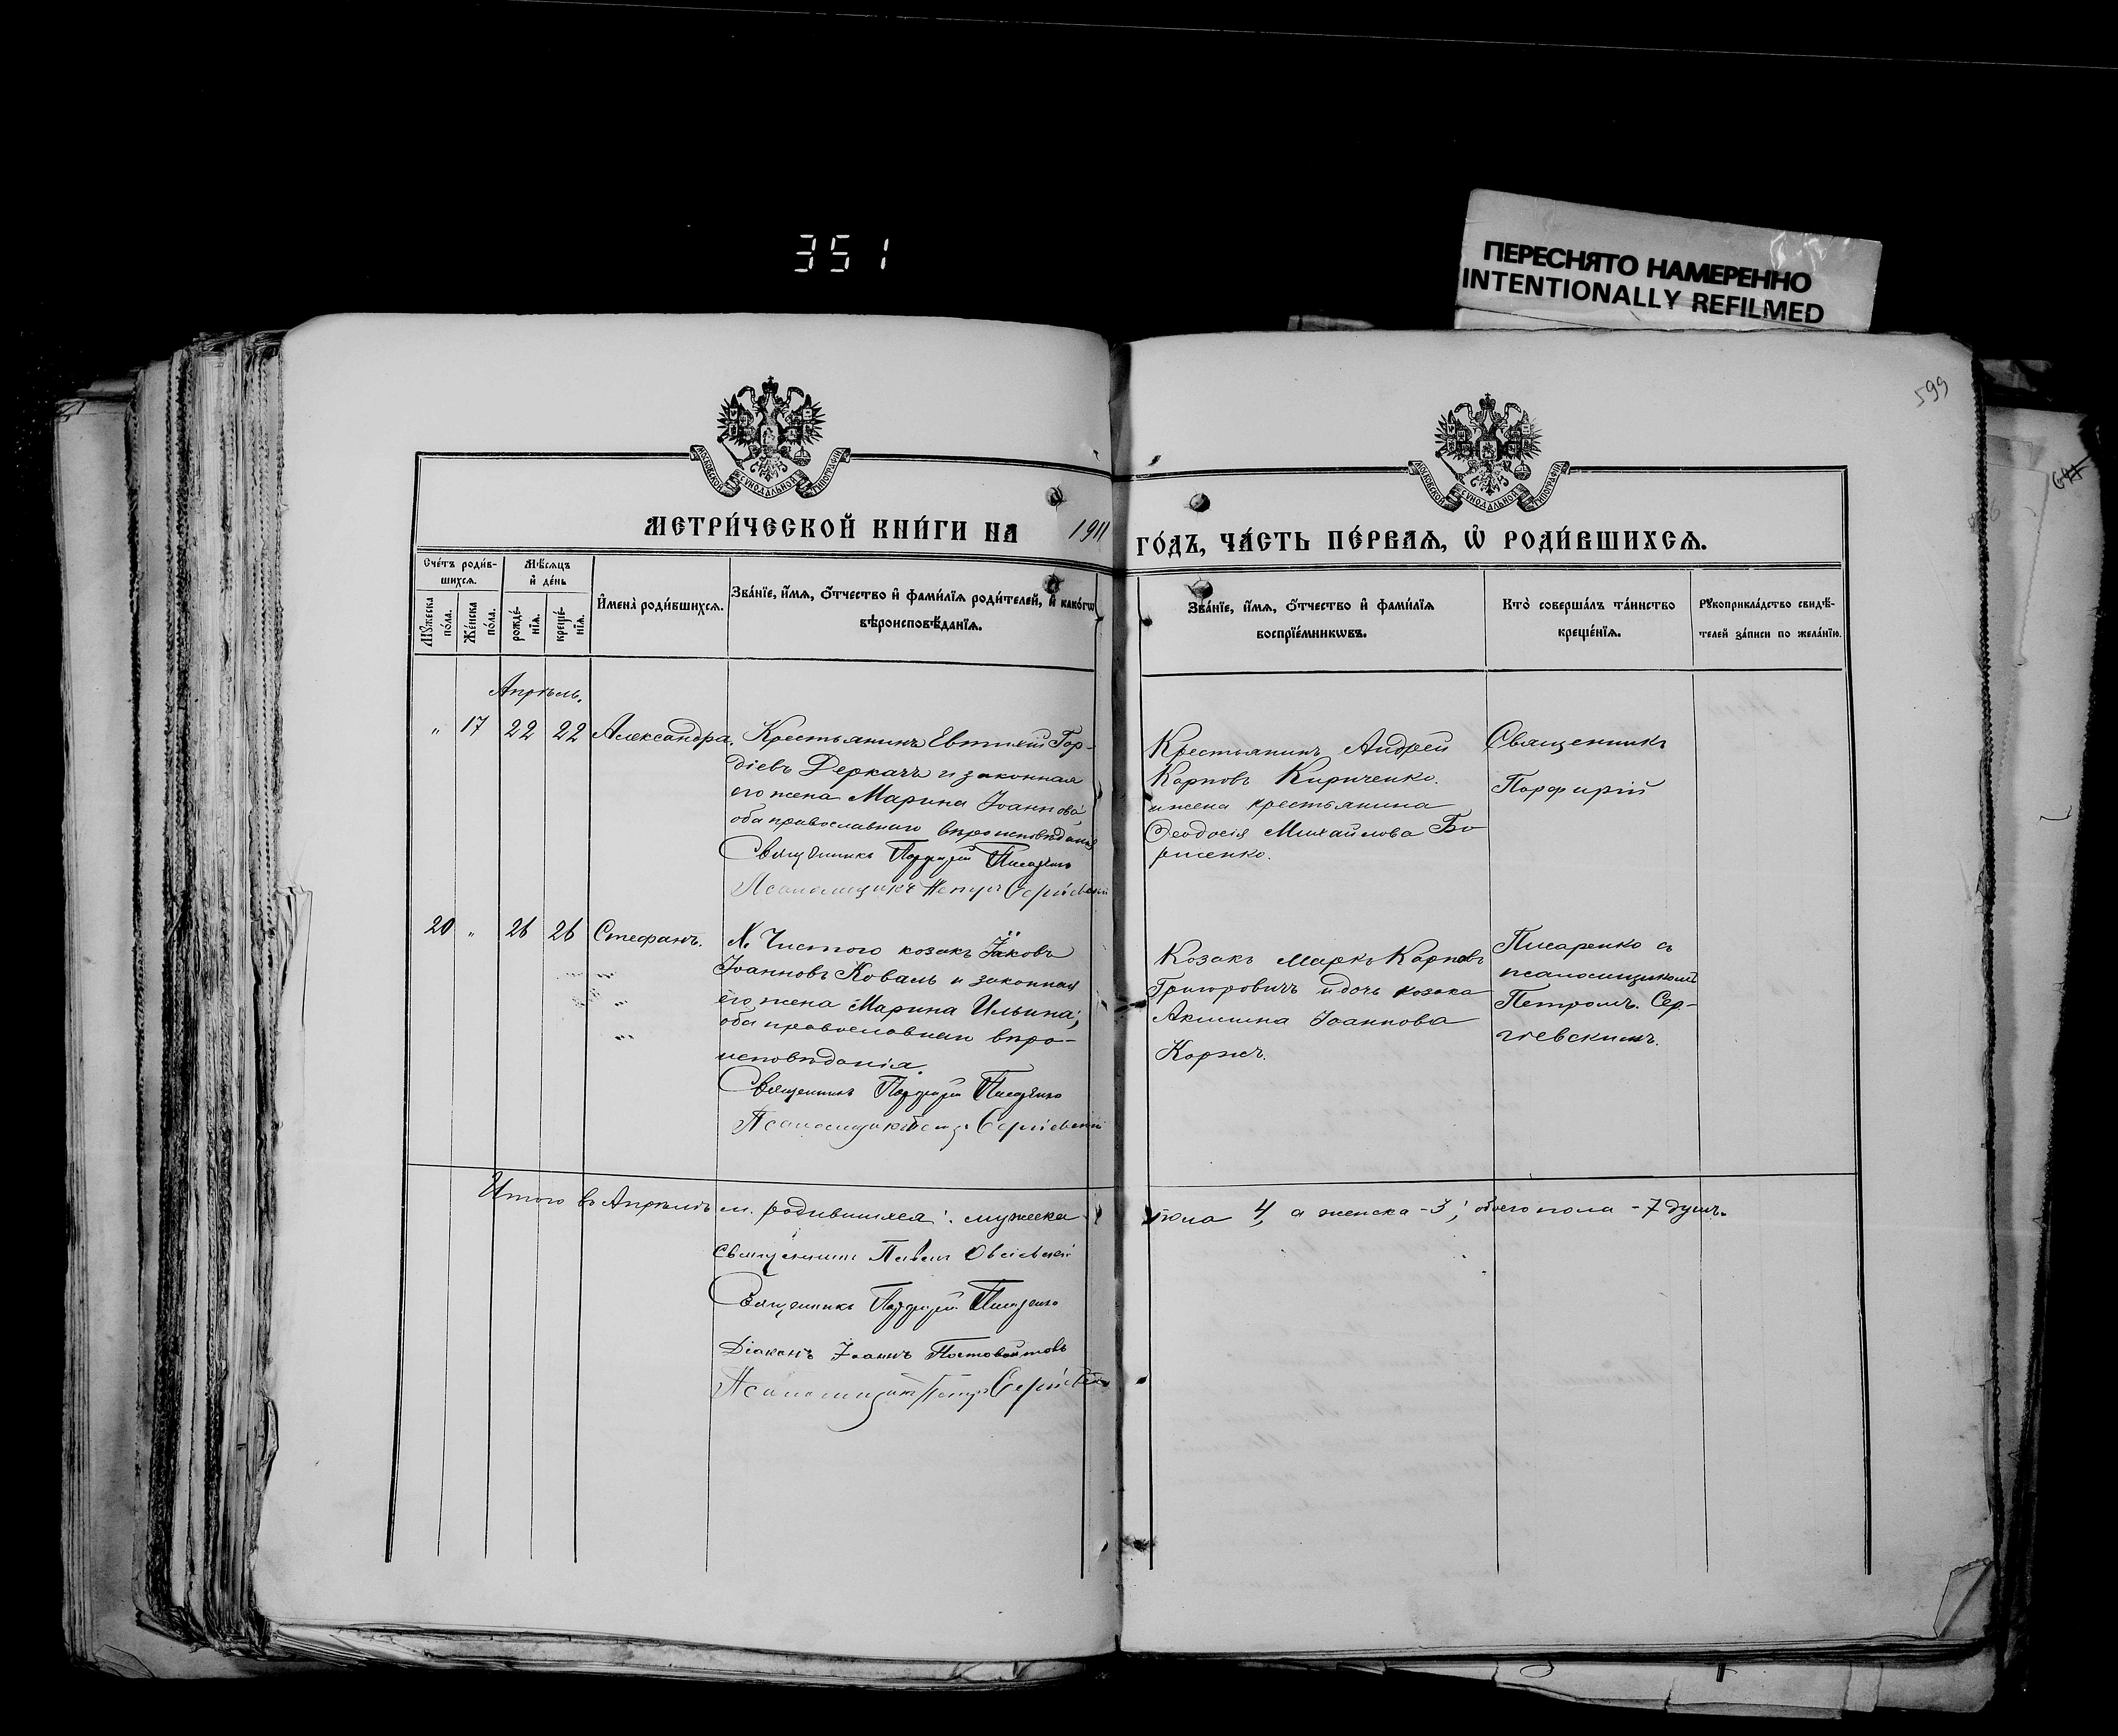 351
ПЕРЕСНЯТО НАМЕРЕННО
INTENTIONALLY REFILMED
599
МОСКОВСКОЙ СѴНОДАЛЬНОЙ ТИПОГРАФІИ
МОСКОВСКОЙ СѴНОДАЛЬНОЙ ТИПОГРАФІИ
МЕТРИ́ЧЕСКОЙ КНИ́ГИ НА 1911 ГО́ДЪ, ЧА́СТЬ ПЕ́РВАЯ, Ѡ҆ РОДИ́ВШИХСЯ.
Сче́тъ роди́в-
шихся.
Мѣ́сяцъ
и҆ де́нь
Мꙋ́жеска
по́ла.
Же́нска
по́ла.
рожде́-
нїя.
креще́-
нїя.
И҆мена̀ роди́вшихся.
Зва́нїе, и҆́мя, ѻ҆́тчество и҆ фами́лїя роди́телей, и҆ како́гѡ
вѣроисповѣ́данїя.
Зва́нїе, и҆́мя, ѻ҆́тчество и҆ фами́лїя
воспрїе́мникѡвъ.
Кто̀ соверша́лъ та́инство
креще́нїя.
Рꙋкоприкла́дство свидѣ́-
телей за́писи по жела́нїю.
Апрѣль.
" 17 22 22 Александра.
Крестьянинъ Евтихій Гор-
діевъ Деркачъ и законная
его жена Марина Іоаннова,
оба православнаго вѣроисповѣданія
Священникъ Порфирій Писаренко
Псаломщикъ Петръ Сергіевскій
Крестьянинъ Андрей
Карповъ Кириченко
и жена крестьянина
Ѳеодосія Михайлова Бо-
рисенко.
Священникъ
Порфирій
20 " 26 26 Стефанъ.
Х. Чистого козакъ Іаковъ
Іоанновъ Коваль и законная
его жена Марина Ильина,
оба православнаго вѣро-
исповѣданія.
Священникъ Порфирій Писаренко
Псаломщикъ Петръ Сергіевскій
Козакъ Маркъ Карповъ
Григоровичъ и дочь козака
Акилина Іоаннова
Коржъ.
Писаренко съ
псаломщикомъ
Петромъ Сер-
гіевскимъ.
Итого въ Апрѣлѣ м. родившихся: мужеска пола 4, а женска - 3; обоего пола - 7 душъ.
Священникъ Павелъ
Священникъ Порфирій Писаренко
Діаконъ Іоаннъ Постовойтовъ
Псаломщикъ Петръ Сергіевскій